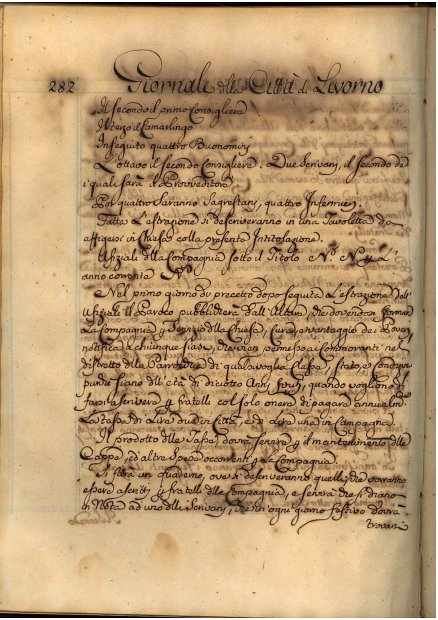 282 Giornale della Città di Livorno
Il secondo il primo Consigliere
Il terzo il Camarlingo
In seguito quattro Buonomini
L'ottavo il secondo Consigliere. Due Scrivani, il secondo de
i quali sarà il Provveditore
Poi quattro Saranno Sagrestani, quattro Infermieri.
Fatta L'estrazione si descriveranno in una Tavoletta da
affigersi in Chiesa colla presente Intitolazione.
Ufiziali della Compagnia sotto il Titolo N.° N.° L'
anno corrente N.°
Nel primo giorno di precetto dopo seguita L'estrazione dell'
Ufiziali il Paroco pubblicherà dall'Altare, che dovendosi formar
La Compagnia Servizio della Chiesa, Cura, e vantaggio dei Poveri,
notifica a chiunque siasi, che vien permesso ai Commoranti nel
distretto della Parrochia di qualsivoglia Classe, Stato, e Condizione
purchè siano dell'età di diciotto Anni, quando voglino di
farsi ascrivere fratelli col solo onere di pagare annualm.
La tassa di Lire due in Città, ed una lira in Campagna.
Il prodotto della Tassa, dovrà servire il mantenimento delle
Cappe, ed altre Spese occorrenti La Compagnia.
Si farà un quaderno, ove si descriveranno quelli, che vorranno
essere ascritti fratelli della Compagnia, e servirà che si diano
in Nota ad uno delli Scrivani, che in ogni giorno festivo dovrà
trovarsi